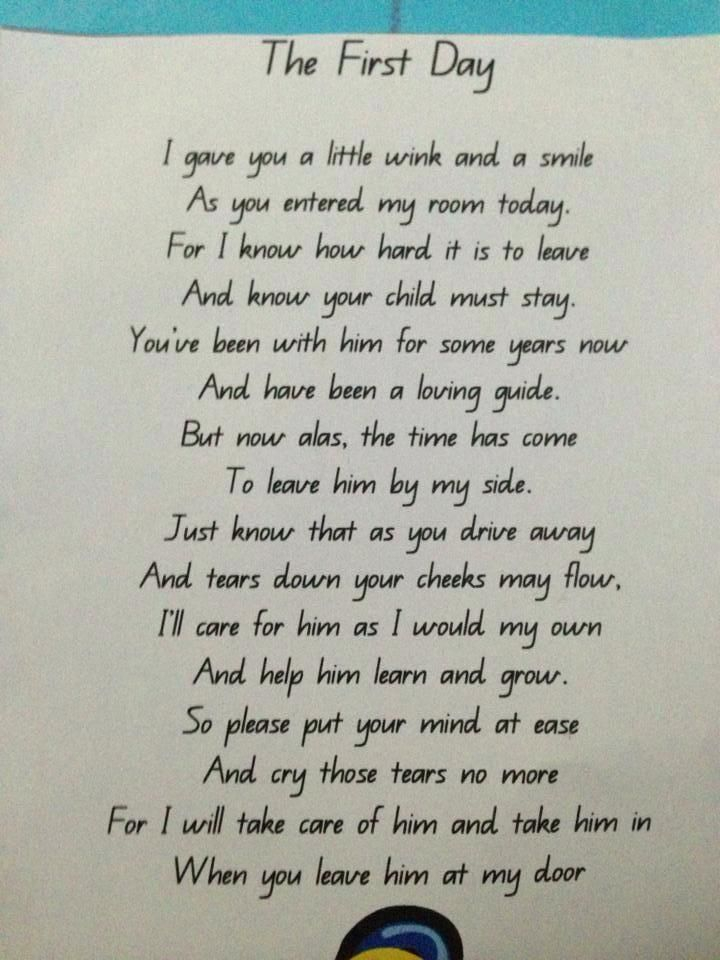 The First Day
I gave you a little wink and a smile
As you entered my room today.
For I know how hard it is to leave
And know your child must stay.
You've been with him for some years now
And have been a loving guide.
But now alas, the time has come
To leave him by my side.
Just know that as you drive away
And tears down your cheeks may flow,
I'll care for him as I would my own
And help him learn and grow.
So please put your mind at ease
And cry those tears no more
For I will take care of him and take him in
When you leave him at my door